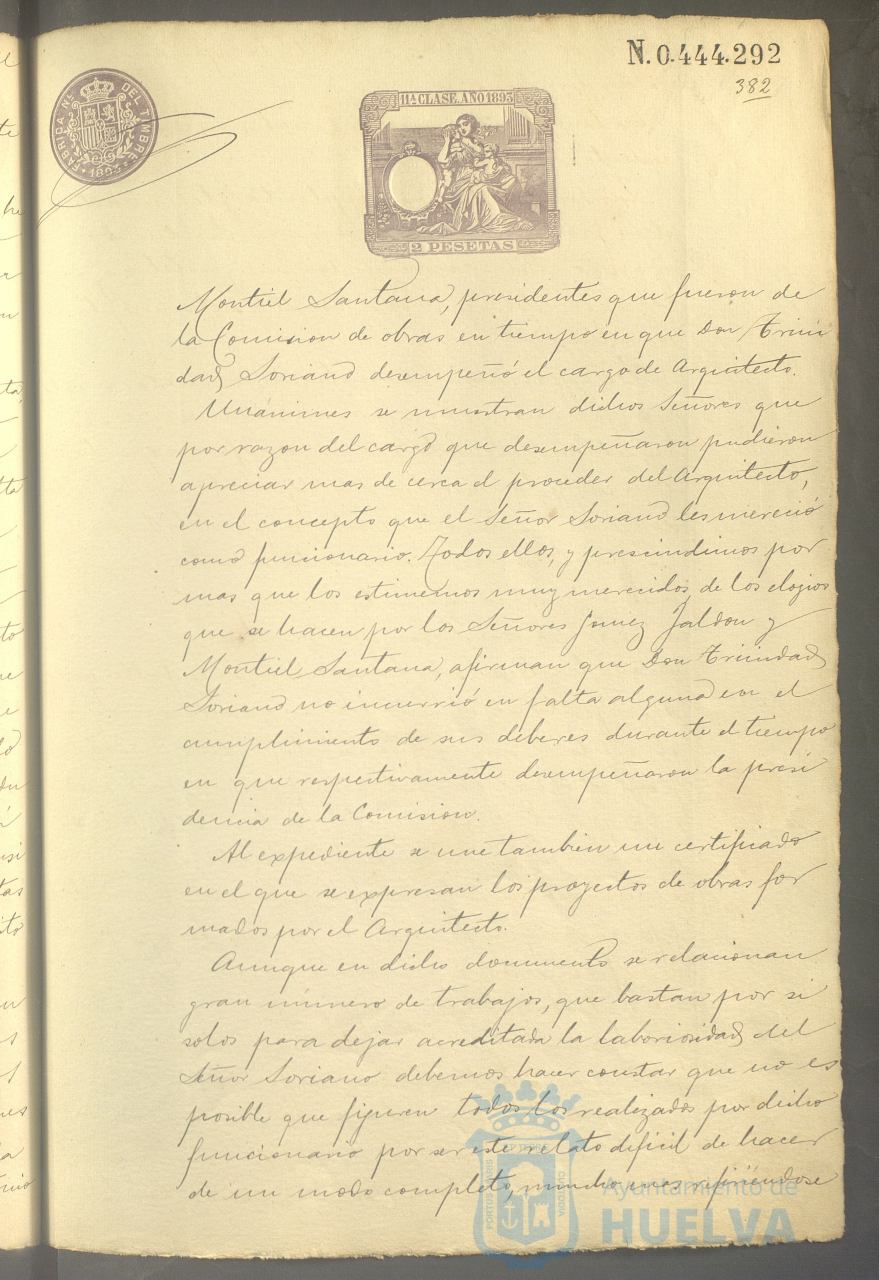 N. 0.444.292
382
FABRICA Nal. DEL TIMBRE
1893
11ª CLASE. AÑO 1893
2 PESETAS
Montiel Santana, presidentes que fueron de
la Comision de obras en tiempo en que Don Trini
dad Soriano desempeñó el cargo de Arquitecto.
Unánimes se muestran dichos Señores que
por razon del cargo que desempeñaron pudieron
apreciar mas de cerca el proceder del Arquitecto,
en el concepto que el Señor Soriano les mereció
como funcionario. Todos ellos, y prescindimos por
mas que los estimemos muy merecidos, de los elogios
que se hacen por los Señores Gomez Jaldon y
Montiel Santana, afirman que Don Trinidad
Soriano no incurrió en falta alguna en el
cumplimiento de sus deberes durante el tiempo
en que respectivamente desempeñaron la presi
dencia de la Comision.
Al expediente se une tambien un certificado
en el que se expresan los proyectos de obras for
mados por el Arquitecto.
Aunque en dicho documento se relacionan
gran número de trabajos, que bastan por si
solos para dejar acreditada la laboriosidad del
Señor Soriano debemos hacer constar que no es
posible que figuren todos los realizados por dicho
funcionario por ser este relato dificil de hacer
de un modo completo, mucho mas refiriéndose
Ayuntamiento de
HUELVA